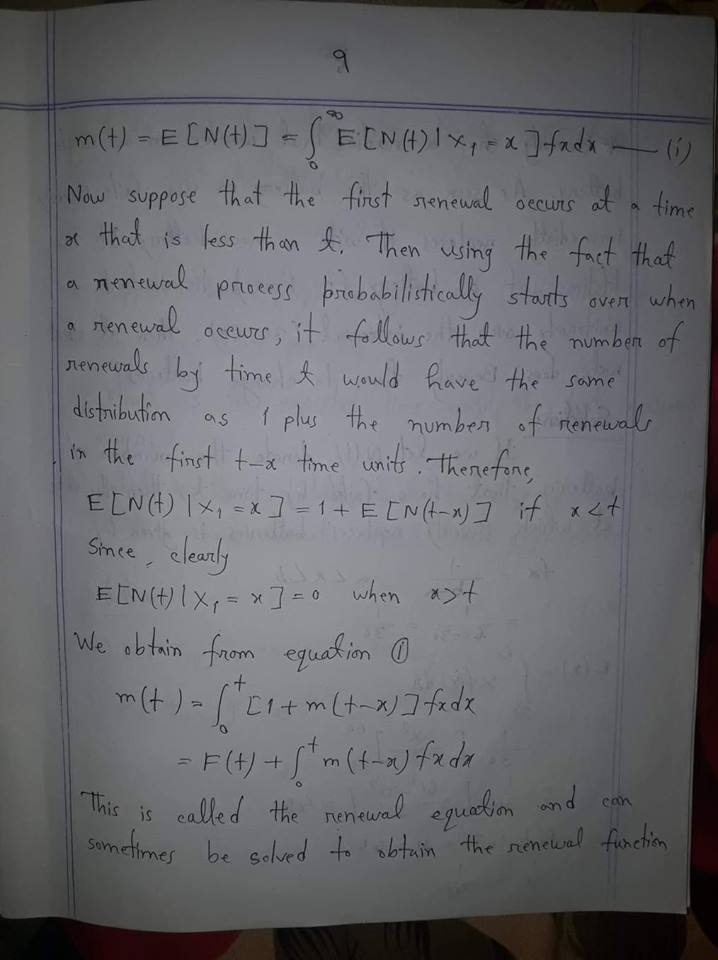 9
m(t) = E[N(t)] = ∫₀^∞ E[N(t) | X₁ = x] fxdx — (i)
Now suppose that the first renewal occurs at a time
x that is less than t. Then using the fact that
a renewal process probabilistically starts over when
a renewal occurs, it follows that the number of
renewals by time t would have the same
distribution as 1 plus the number of renewals
in the first t-x time units. Therefore,
E[N(t) | X₁ = x] = 1 + E[N(t-x)] if x < t
Since, clearly
E[N(t) | X₁ = x] = 0 when x > t
We obtain from equation ①
m(t) = ∫₀^t [1 + m(t-x)] fxdx
= F(t) + ∫₀^t m(t-x) fxdx
This is called the renewal equation and can
sometimes be solved to obtain the renewal function